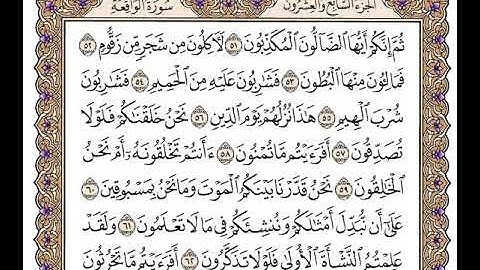 الجزء السابع والعشرون سورة الواقعة
ثُمَّ إِنَّكُمْ أَيُّهَا الضَّالُّونَ الْمُكَذِّبُونَ ٥١ لَآكِلُونَ مِن شَجَرٍ مِّن زَقُّومٍ ٥٢
فَمَالِـُٔونَ مِنْهَا الْبُطُونَ ٥٣ فَشَارِبُونَ عَلَيْهِ مِنَ الْحَمِيمِ ٥٤ فَشَارِبُونَ
شُرْبَ الْهِيمِ ٥٥ هَٰذَا نُزُلُهُمْ يَوْمَ الدِّينِ ٥٦ نَحْنُ خَلَقْنَاكُمْ فَلَوْلَا
تُصَدِّقُونَ ٥٧ أَفَرَءَيْتُم مَّا تُمْنُونَ ٥٨ ءَأَنتُمْ تَخْلُقُونَهُ أَمْ نَحْنُ
الْخَالِقُونَ ٥٩ نَحْنُ قَدَّرْنَا بَيْنَكُمُ الْمَوْتَ وَمَا نَحْنُ بِمَسْبُوقِينَ ٦٠
عَلَىٰ أَن نُّبَدِّلَ أَمْثَالَكُمْ وَنُنشِئَكُمْ فِي مَا لَا تَعْلَمُونَ ٦١ وَلَقَدْ
عَلِمْتُمُ النَّشْأَةَ الْأُولَىٰ فَلَوْلَا تَذَكَّرُونَ ٦٢ أَفَرَءَيْتُم مَّا تَحْرُثُونَ